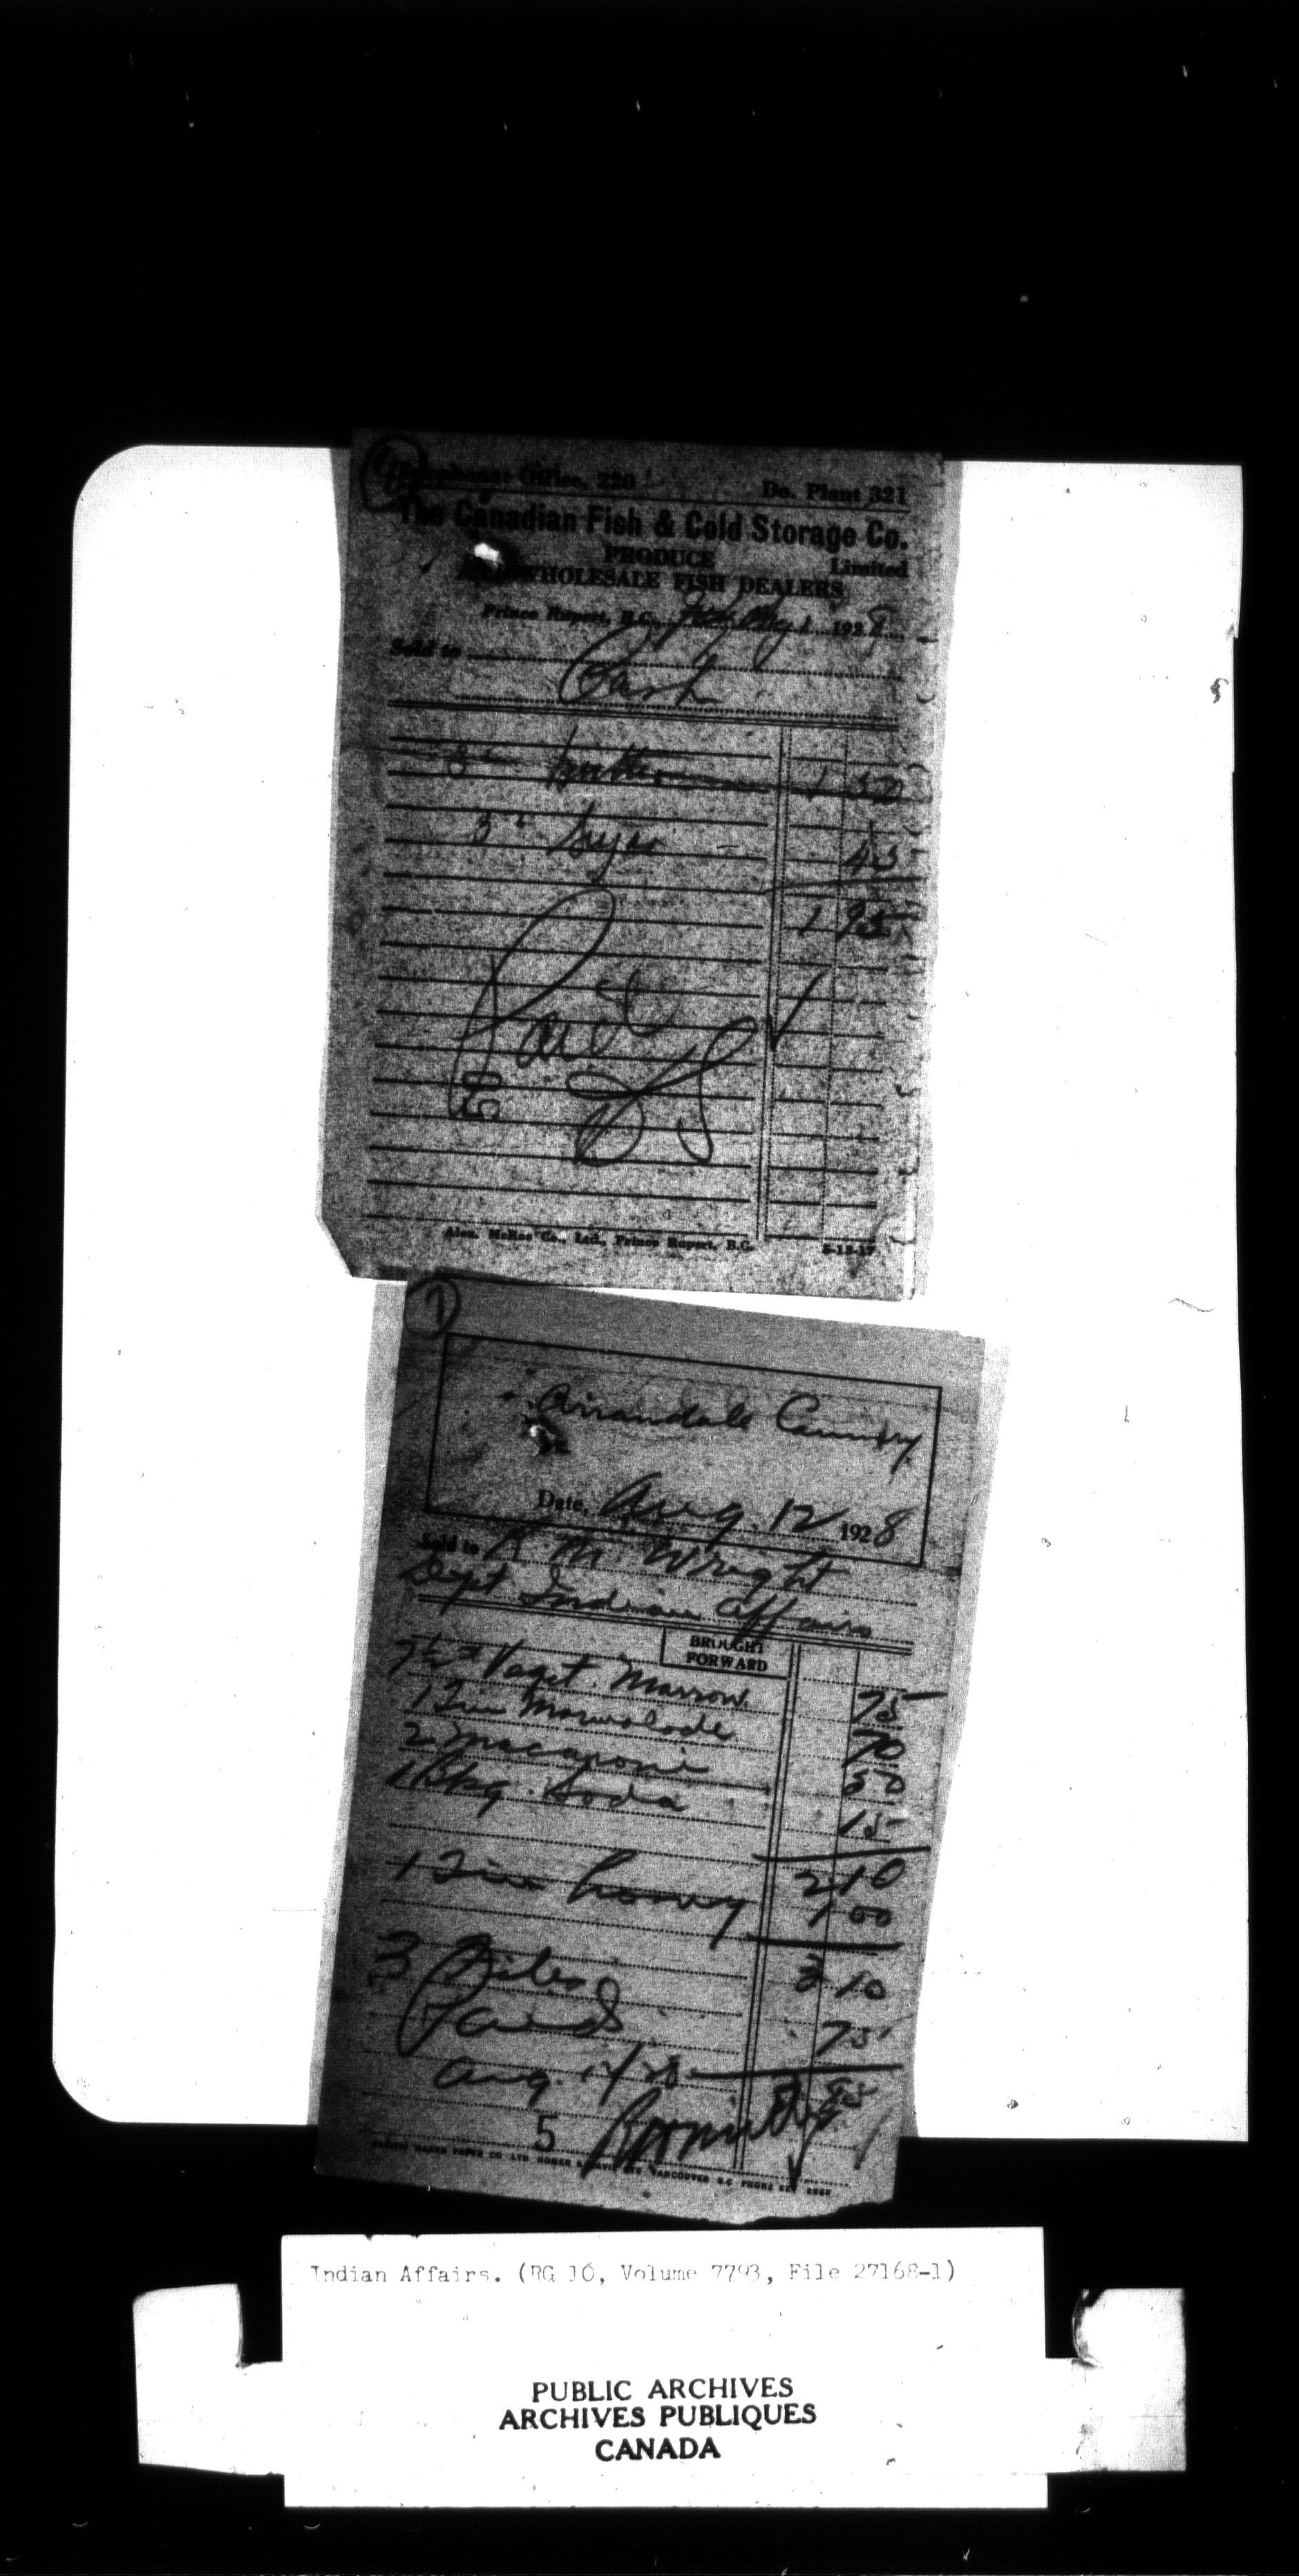 Office, 220 Do. Plant 321
The Canadian Fish & Cold Storage Co.
Limited
PRODUCE
WHOLESALE FISH DEALERS
Prince Rupert, B.C. 1 1928
Sold to
Cash
1 50
3 45
1 95
Paid
Alex. McRae Co., Ltd., Prince Rupert, B.C. 5-13-17
1
Arrandale Cannery
Date, Aug. 12 1928
Sold to R M Wright
Dept Indian Affairs
BROUGHT
FORWARD
7½# Veget. Marrow 75
1 Tin Marmalade 70
2 Macaroni 50
1 Pkg. Soda 15
2 10
1 Tin honey 1 00
3 10
3 Files 75
Paid
Aug. 14/28
5
Indian Affairs. (RG 10, Volume 7793, File 27168-1)
PUBLIC ARCHIVES
ARCHIVES PUBLIQUES
CANADA